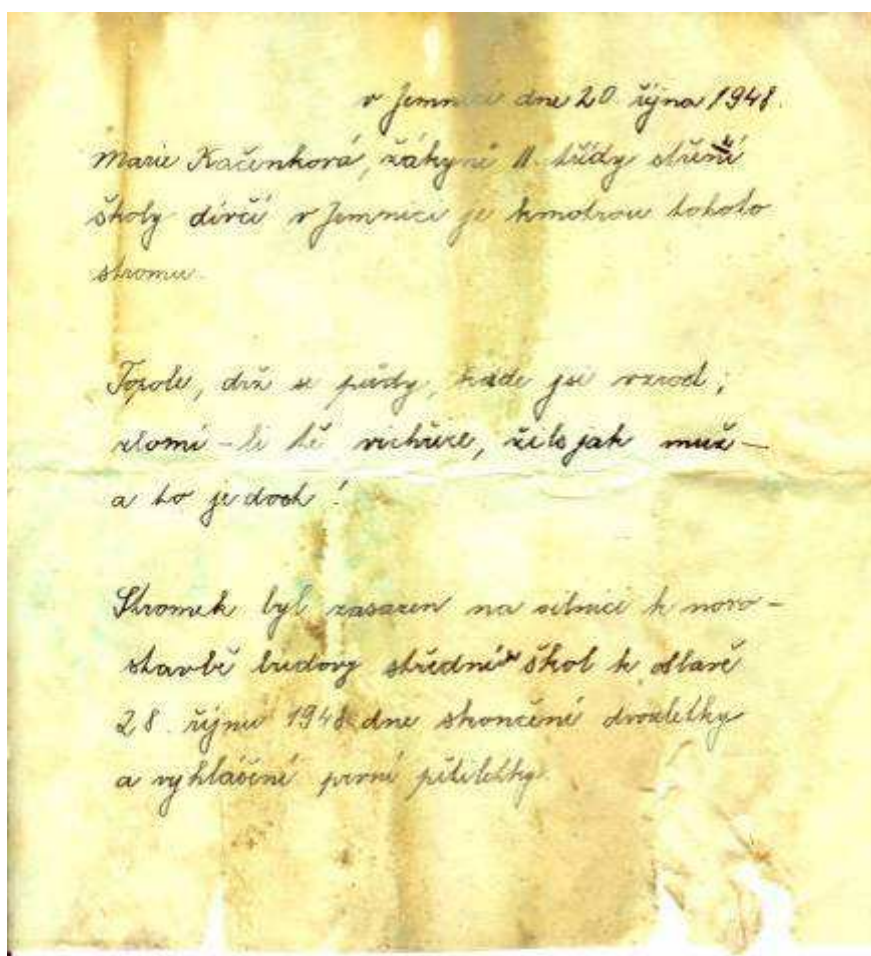 v Jemnici dne 20. října 1948.
Marie Kačenková, žákyně II. třídy stření
školy dívčí v Jemnici je kmotrou tohoto
stromu.
Topole, drž se půdy, kade jsi vzrod;
zlomí-li tě vichřice, žils jak muž—
a to je dost!
Stromek byl zasazen na silnici k novo-
stavbě budovy střední škol k oslavě
28. říjnu 1948 dne skončení dvouletky
a vyhlášení první pětiletky.